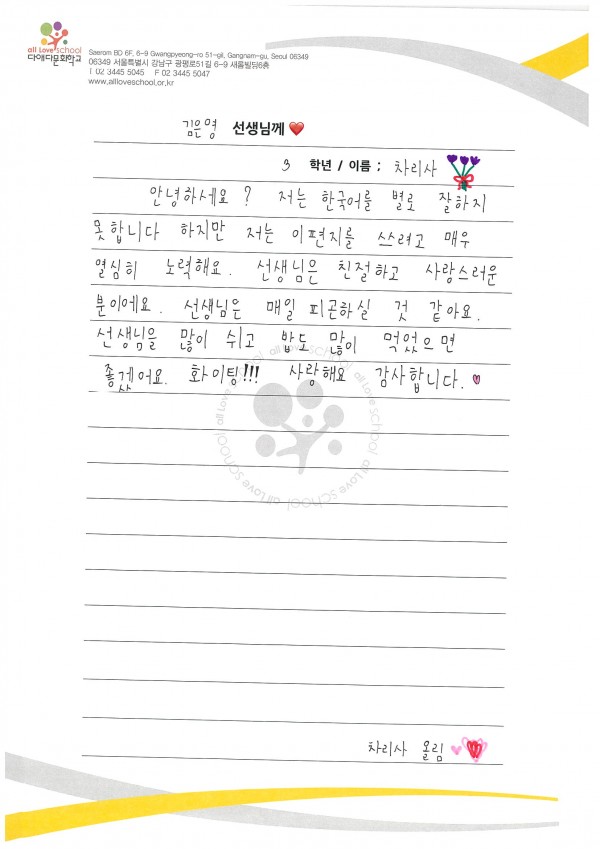 all Love school
다애다문화학교
Saerom BD 6F, 6-9 Gwangpyeong-ro 51-gil, Gangnam-gu, Seoul 06349
06349 서울특별시 강남구 광평로51길 6-9 새롬빌딩6층
T 02 3445 5045 F 02 3445 5047
www.allloveschool.or.kr
김은영 선생님께
3 학년 / 이름 : 차리사
안녕하세요? 저는 한국어를 별로 잘하지
못합니다 하지만 저는 이편지를 쓰려고 매우
열심히 노력해요. 선생님은 친절하고 사랑스러운
분이에요. 선생님은 매일 피곤하실 것 같아요.
선생님을 많이 쉬고 밥도 많이 먹었으면
좋겠어요. 화이팅!!! 사랑해요 감사합니다.
all Love school all Love school all Love school all Love school
차리사 올림